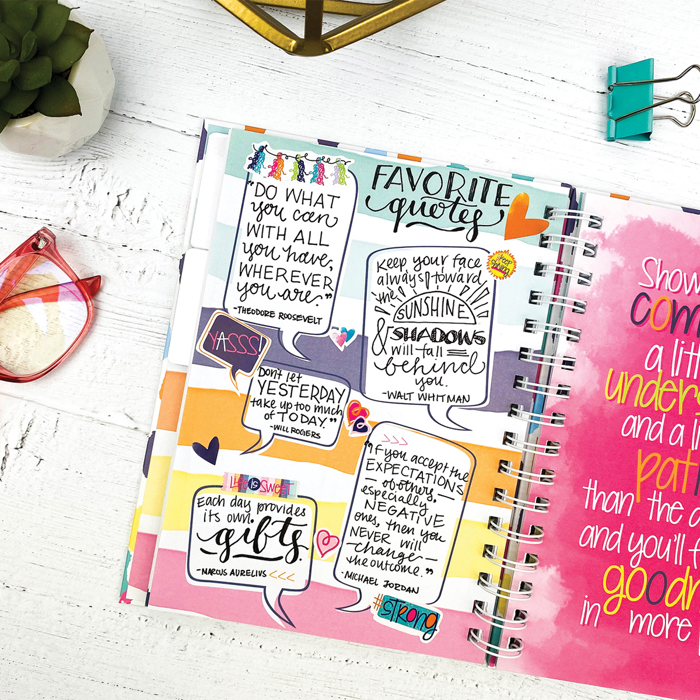 FAVORITE
quotes
"DO WHAT
you can
WITH ALL
you have,
WHEREVER
you are."
-THEODORE ROOSEVELT
Keep your face
always toward
the
SUNSHINE
& SHADOWS
will fall
behind
you.
-WALT WHITMAN
YASSS!
Don't let
YESTERDAY
take up too much
of TODAY."
-WILL ROGERS
"If you accept the
EXPECTATIONS
of others,
especially
NEGATIVE
ones, then you
NEVER will
change
the outcome."
-MICHAEL JORDAN
#STRONG
Life is Sweet
Each day provides
its own
gifts
-MARCUS AURELIUS <<<
Show
com
a litt
unders
and a li
pati
than the
and you'll f
good
in more